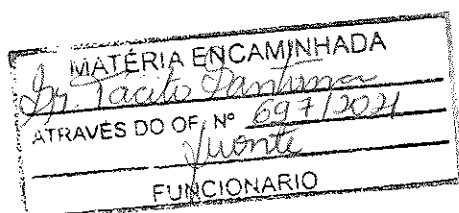 MATÉRIA ENCAMINHADA
Dr. Tacito
ATRAVÉS DO OF. Nº 697/2021
FUNCIONARIO